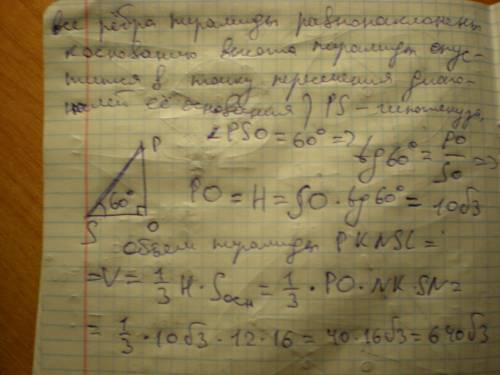 все рёбра пирамиды равнонаклонены
к основанию высота пирамиды опус-
тится в точку пересечения диаго-
налей её основания) PS – гипотенуза,
∠PSO = 60° => tg 60° = PO/SO =>
PO = H = SO · tg 60° = 10√3
P
60°
S O
Объём пирамиды PKNSL =
= V = 1/3 H · Sосн = 1/3 · PO · NK · SN =
= 1/3 · 10√3 · 12 · 16 = 40 · 16√3 = 640√3